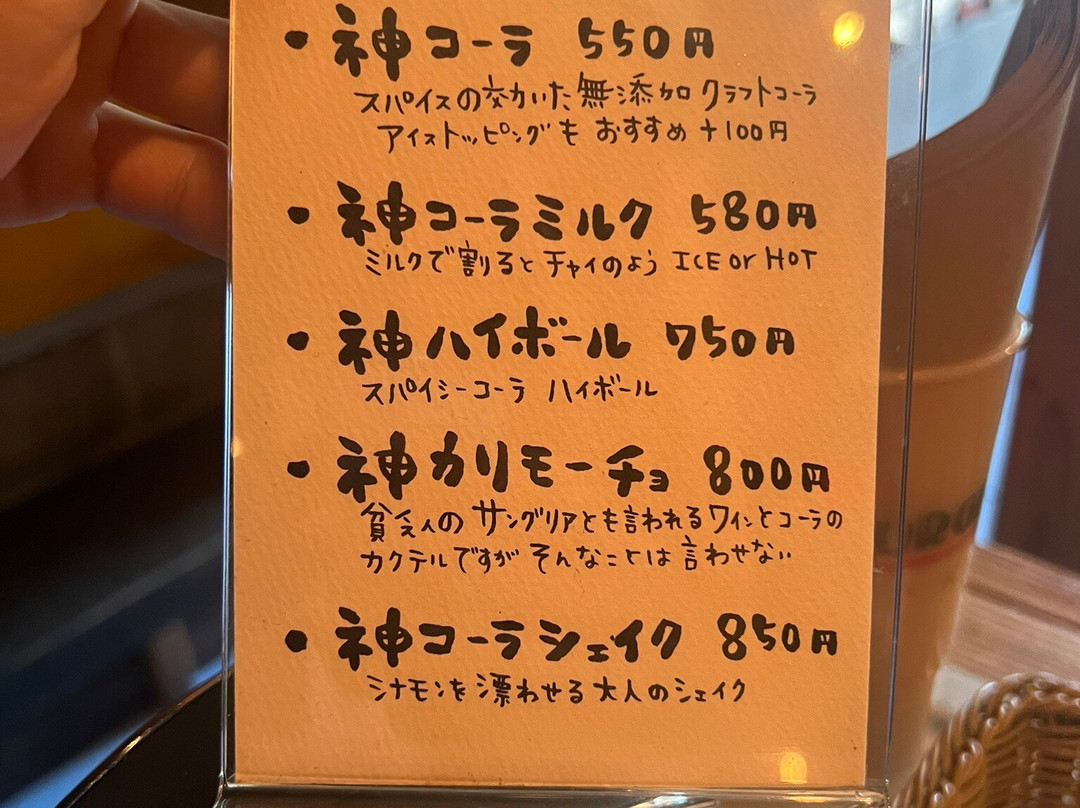 ・神コーラ 550円
スパイスの効いた無添加クラフトコーラ
アイストッピングもおすすめ+100円
・神コーラミルク 580円
ミルクで割るとチャイのよう ICE or HOT
・神ハイボール 750円
スパイシーコーラ ハイボール
・神カリモーチョ 800円
貧乏人のサングリアとも言われるワインとコーラの
カクテルですが そんなことは言わせない
・神コーラシェイク 850円
シナモンを漂わせる大人のシェイク